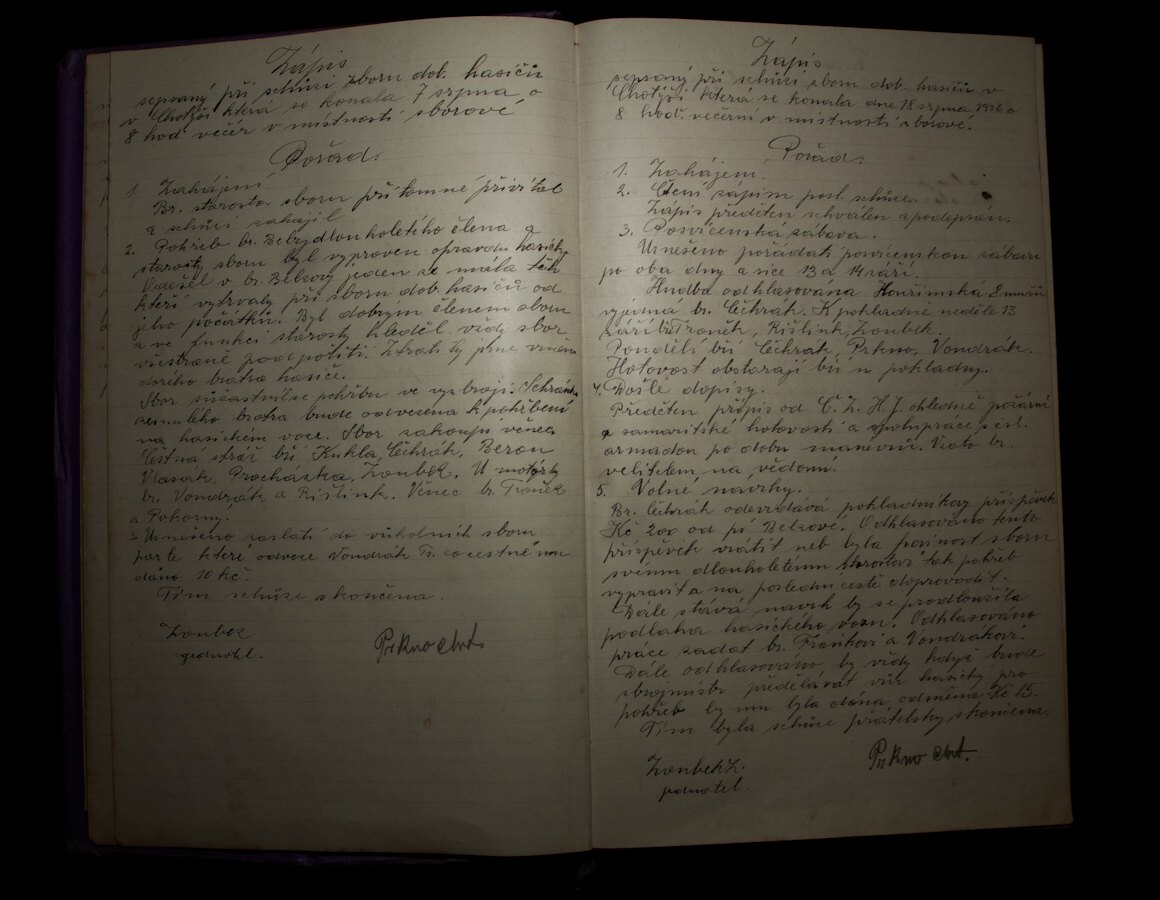 Zápis
sepsaný při schůzi sboru dob. hasičů
v Chotýši která se konala 7 srpna o
8 hod večer v místnosti sborové
Pořad:
1. Zahájení
Br. starosta sboru přítomné přivítal
a schůzi zahájil.
2. Pohřeb br. Belzy dlouholetého člena a
starosty sboru byl vypraven opravdu hasičky
Odešel v br. Belzovy jeden ze mála těch
kteří vytrvaly při sboru dob. hasičů od
jeho počátků. Byl dobrým členem sboru
a ve funkci starosty hleděl vždy sbor
všestraně podpořiti. Ztratily jsme v něm
dobrého bratra hasiče.
Sbor súčastnil se pohřbu ve výzbroji. Schránka
zesnulého bratra bude odvezena k pohřbení
na hasičkém voze. Sbor zakoupí věnec
Čestná stráž bří Kukla, Čěhrák, Beran
Vlasák, Procházka, Zoubek. U motorky
br. Vondrák a Rišlink. Věnec br. Troněk
a Pokorný.
3 Usnešeno zaslati do okolních sborů
parte které odveze Vondrák Fr. co cestné mu
dáno 10 Kč.
Tím schůze skončena.
Zoubek
jednatel.
Prkno Ant.
Zápis
sepsaný při schůzi sboru dob. hasičů v
Chotýši která se konala dne 18 srpna 1936 o
8 hod. večerní v místnosti sborové.
Pořad:
1. Zahájení.
2. Čtení zápisu posl. schůze.
Zápis předčten schválen a podepsán.
3. Posvícenská zábava.
Usnešeno pořádati posvícenskou zábavu
po oba dny a sice 13 a 14 září.
Hudba odhlasována Kouřimská 8 mužů
vyjedná br. Čěhrák. K pokladně neděle 13
září bří Troněk, Rišlink, Zoubek.
Pondělí bří Čěhrák, Prkno, Vondrák.
Hotovost obstarají bří u pokladny.
4. Došlé dopisy.
Předčten přípis od Č. Z. H. J. ohledně požární
a samaritské hotovosti a spolupráce s čsl.
armádou po dobu manevrů. Vzato br.
velitelem na vědomí.
5. Volné návrhy.
Br. Čěhrák odevzdává pokladníkovy příspěvek
Kč 200 od pí Belzové. Odhlasováno tento
příspěvek vrátit neb byla povinost sboru
svému dlouholetému starostovi tak pohřeb
vypravit a na poslední cestě doprovodit.
Dále stává návrh by se prodloužila
podlaha hasičkého vozu. Odhlasováno
práce zadat br. Troňkovi a Vondrákovi.
Dále odhlasováno by vždy když bude
zbrojmistr předělávat vůz hasičky pro
pohřeb by mu byla dána odměna Kč 15.
Tím byla schůze přátelsky skončena.
Zoubek Z.
jednatel.
Prkno Ant.